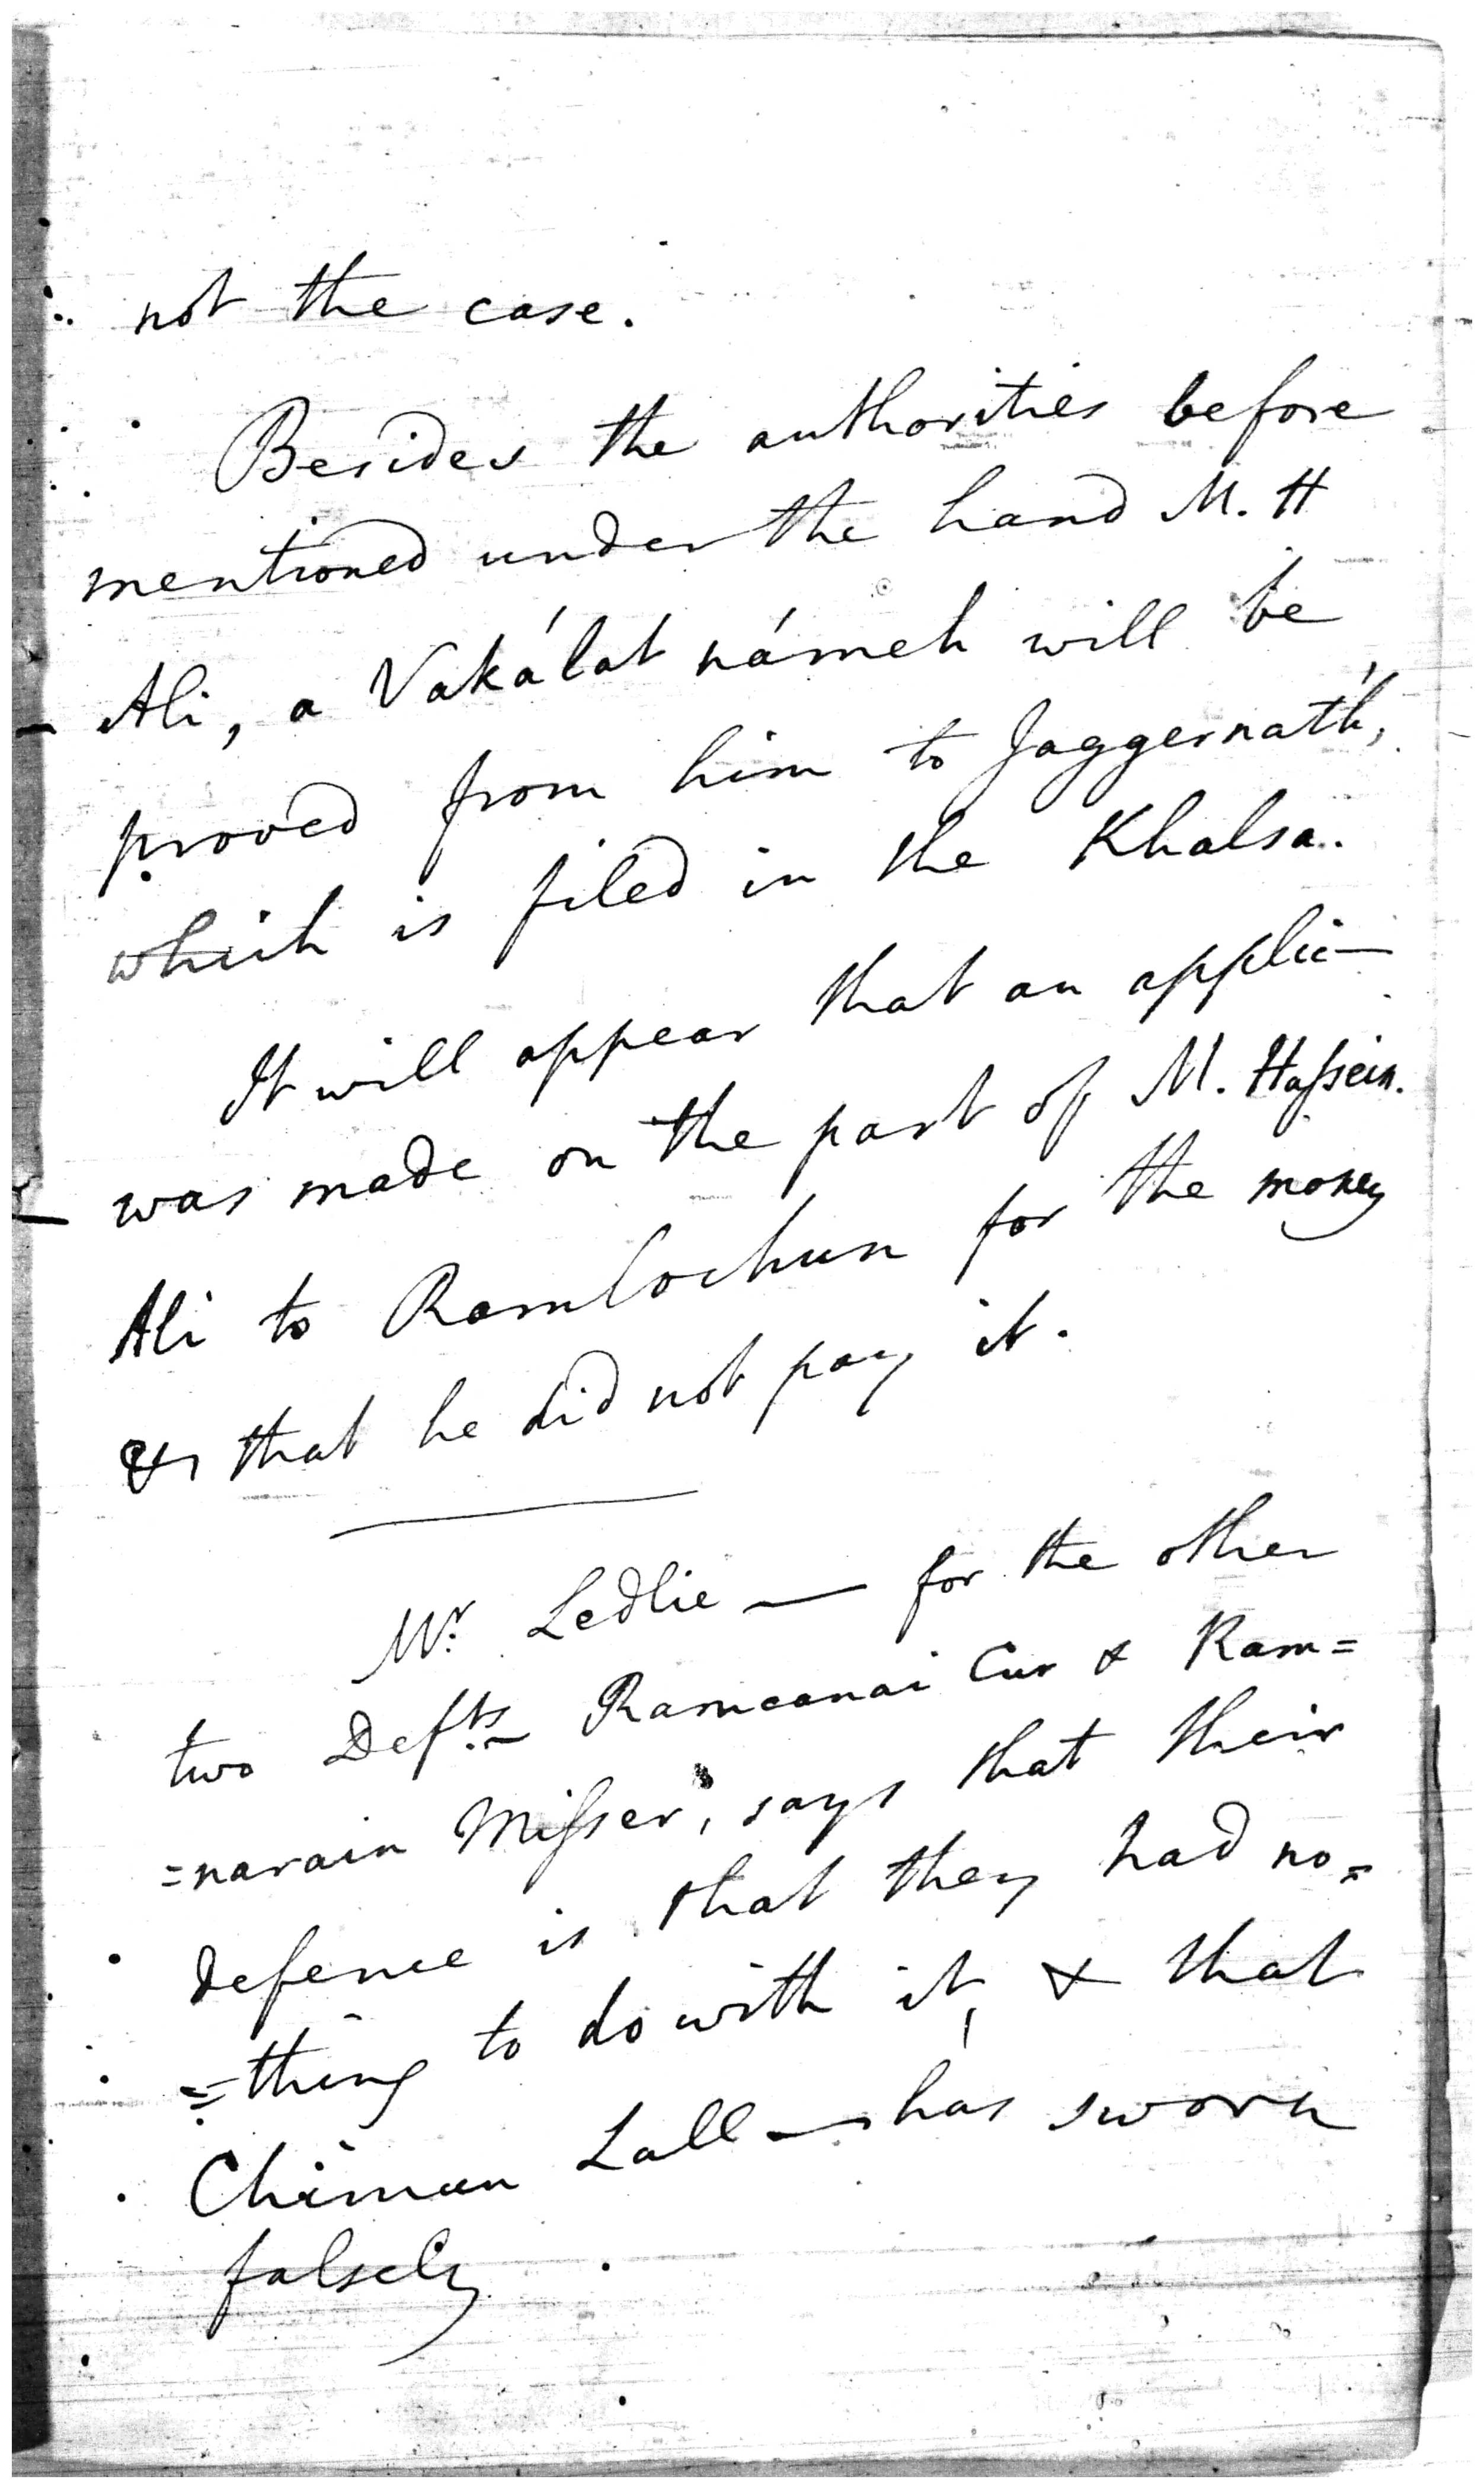 not the case.
Besides the authorities before
mentioned under the hand M. H
Ali, a Vakálat námeh will be
proved from him to Jaggernath,
which is filed in the Khalsa.
It will appear that an applic—
was made on the part of M. Hoſsein.
Ali to Ramlochun for the money
& that he did not pay it.
Mr. Ledlie — for the other
two Defts. Ramcanai Cur & Ram=
=narain Miſser, says that their
defence is that they had no=
=thing to do with it, & that
Chimun Lall — has sworn
falsely